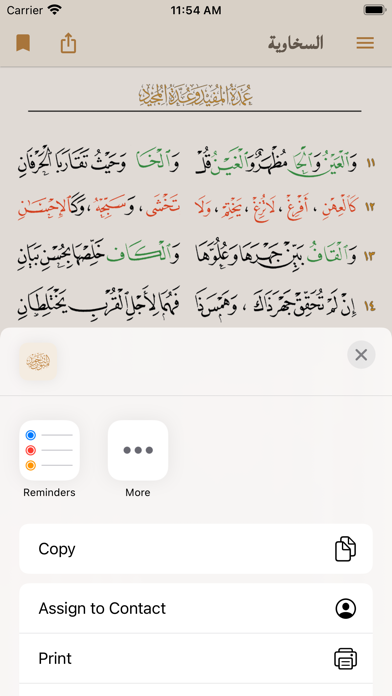 Carrier 11:54 AM
السخاوية
عُمْدَةُ المُفِيدِ وَعُدَّةُ المُجِيدِ
١١ وَالعَيْنُ وَالحَا مُظْهَرٌ وَالغَيْنُ قُلْ وَالخَا وَحَيْثُ تَقَارَبَا الحَرْفَانِ
١٢ كَالعِهْنِ ، أَفْرِغْ ، لَا تُزِغْ ، يَخْتِمْ ، وَلَا تَخْشَى ، وَسَبِّحْهُ ، وَكَالإِحْسَانِ
١٣ وَالقَافُ بَيِّنْ جَهْرَهَا وَعُلُوَّهَا وَالكَافَ خَلِّصْهَا بِحُسْنِ بَيَانِ
١٤ إِنْ لَمْ تُحَقِّقْ جَهْرَ ذَاكَ ، وَهَمْسَ ذَا فَهُمَا لِأَجْلِ القُرْبِ يَخْتَلِطَانِ
Reminders
More
Copy
Assign to Contact
Print